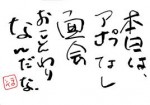 本日は、
アポなし
面会
おことわり
なんだな。